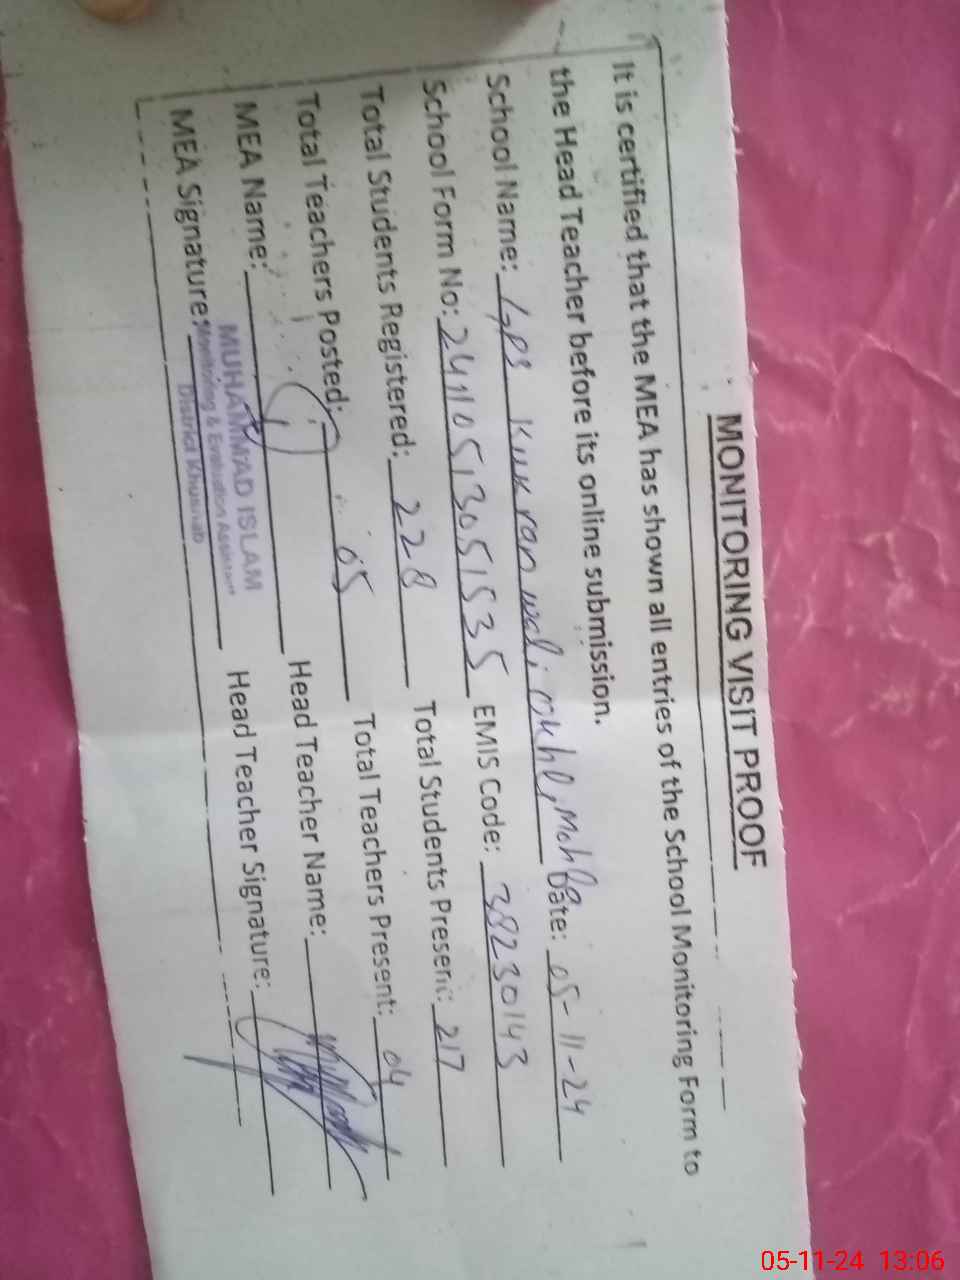 MONITORING VISIT PROOF
It is certified that the MEA has shown all entries of the School Monitoring Form to
the Head Teacher before its online submission.
School Name: GPS Kukran wali Date: 05-11-24
School Form No: EMIS Code: 38230143
Total Students Registered: 228 Total Students Present: 217
Total Teachers Posted: 05 Total Teachers Present: 04
MEA Name: Head Teacher Name:
MEA Signature: Head Teacher Signature:
MUHAMMAD ISLAM
Monitoring & Evaluation Assistant
District Khushab
05-11-24 13:06